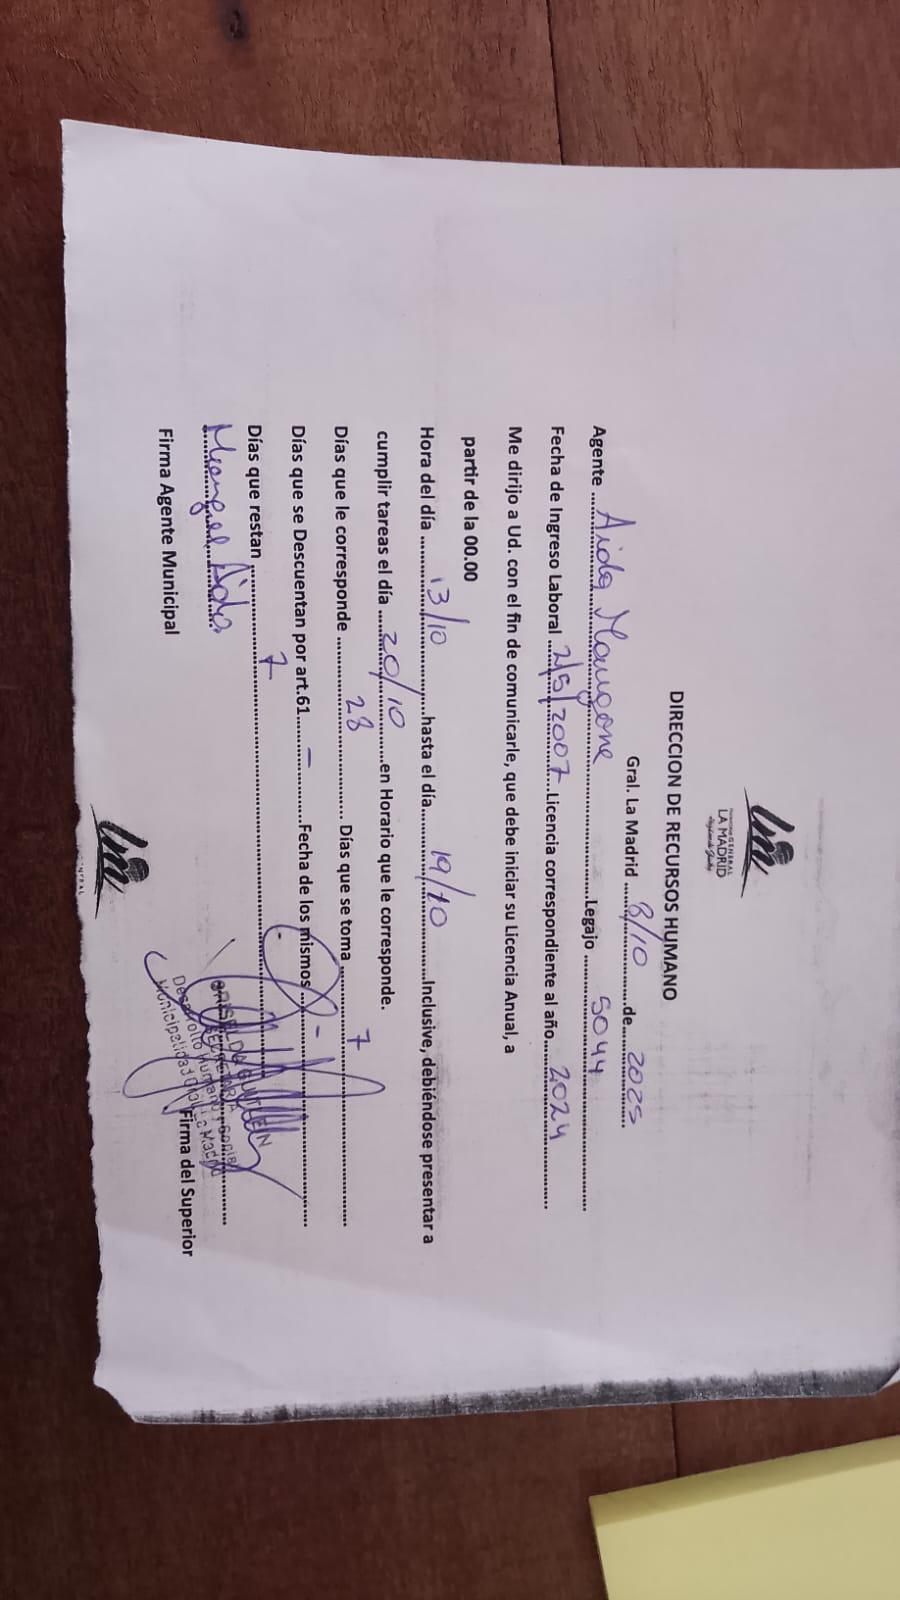 GENERAL
LA MADRID
DIRECCION DE RECURSOS HUMANO
Gral. La Madrid ....8/10....de....2025....
Agente ....Aida....Legajo ....5044....
Fecha de Ingreso Laboral ....2/5/2007....Licencia correspondiente al año....2024....
Me dirijo a Ud. con el fin de comunicarle, que debe iniciar su Licencia Anual, a
partir de la 00.00
Hora del día ....13/10....hasta el día....19/10....Inclusive, debiéndose presentar a
cumplir tareas el día ....20/10....en Horario que le corresponde.
Días que le corresponde ....28.... Días que se toma ....7....
Días que se Descuentan por art.61....–....Fecha de los mismos....–....
Días que restan ....7....
Desarrollo Humano
Municipalidad Gral. La Madrid
Firma Agente Municipal
Firma del Superior